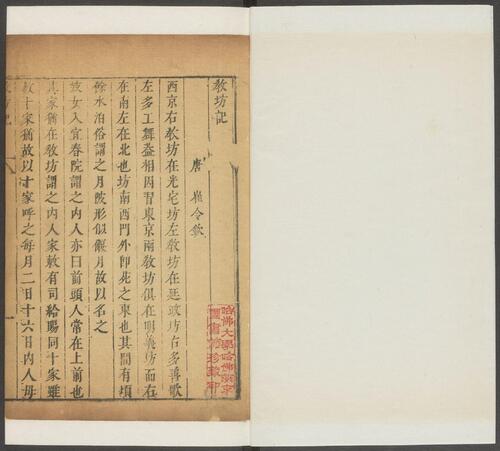 教坊記
唐 崔令欽
西京右教坊在光宅坊左教坊在延政坊右多善歌
左多工舞葢相因習東京兩教坊俱在明義坊而右
在南左在北也坊南西門外卽苑之東也其間有頃
餘水泊俗謂之月陂形似偃月故以名之
妓女入宜春院謂之內人亦曰前頭人常在上前也
其家猶在教坊謂之內人家敕有司給賜同十家雖
數十家猶故以十家呼之每月二日十六日內人母
教坊記 一
哈佛大學哈佛燕京
圖書館珍藏印